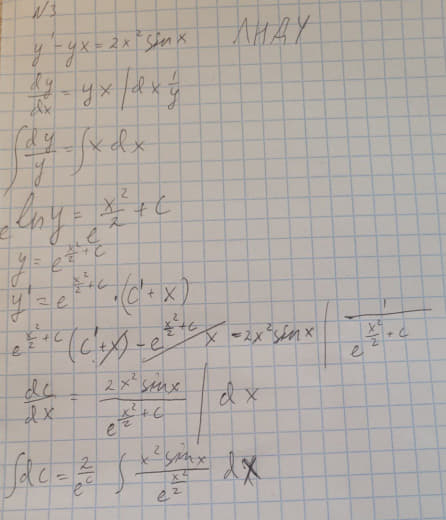 N3
y' - yx = 2x² sin x ЛНДУ
dy/dx = yx | dx 1/y
∫ dy/y = ∫ x dx
e^(ln y) = e^(x²/2 + C)
y = e^(x²/2 + C)
y' = e^(x²/2 + C) · (C' + x)
e^(x²/2 + C) (C' + x) - e^(x²/2 + C) x = 2x² sin x | 1/e^(x²/2 + C)
dc/dx = 2x² sin x / e^(x²/2 + C) | dx
∫ dc = 2/e^c ∫ x² sin x / e^(x²/2) dx